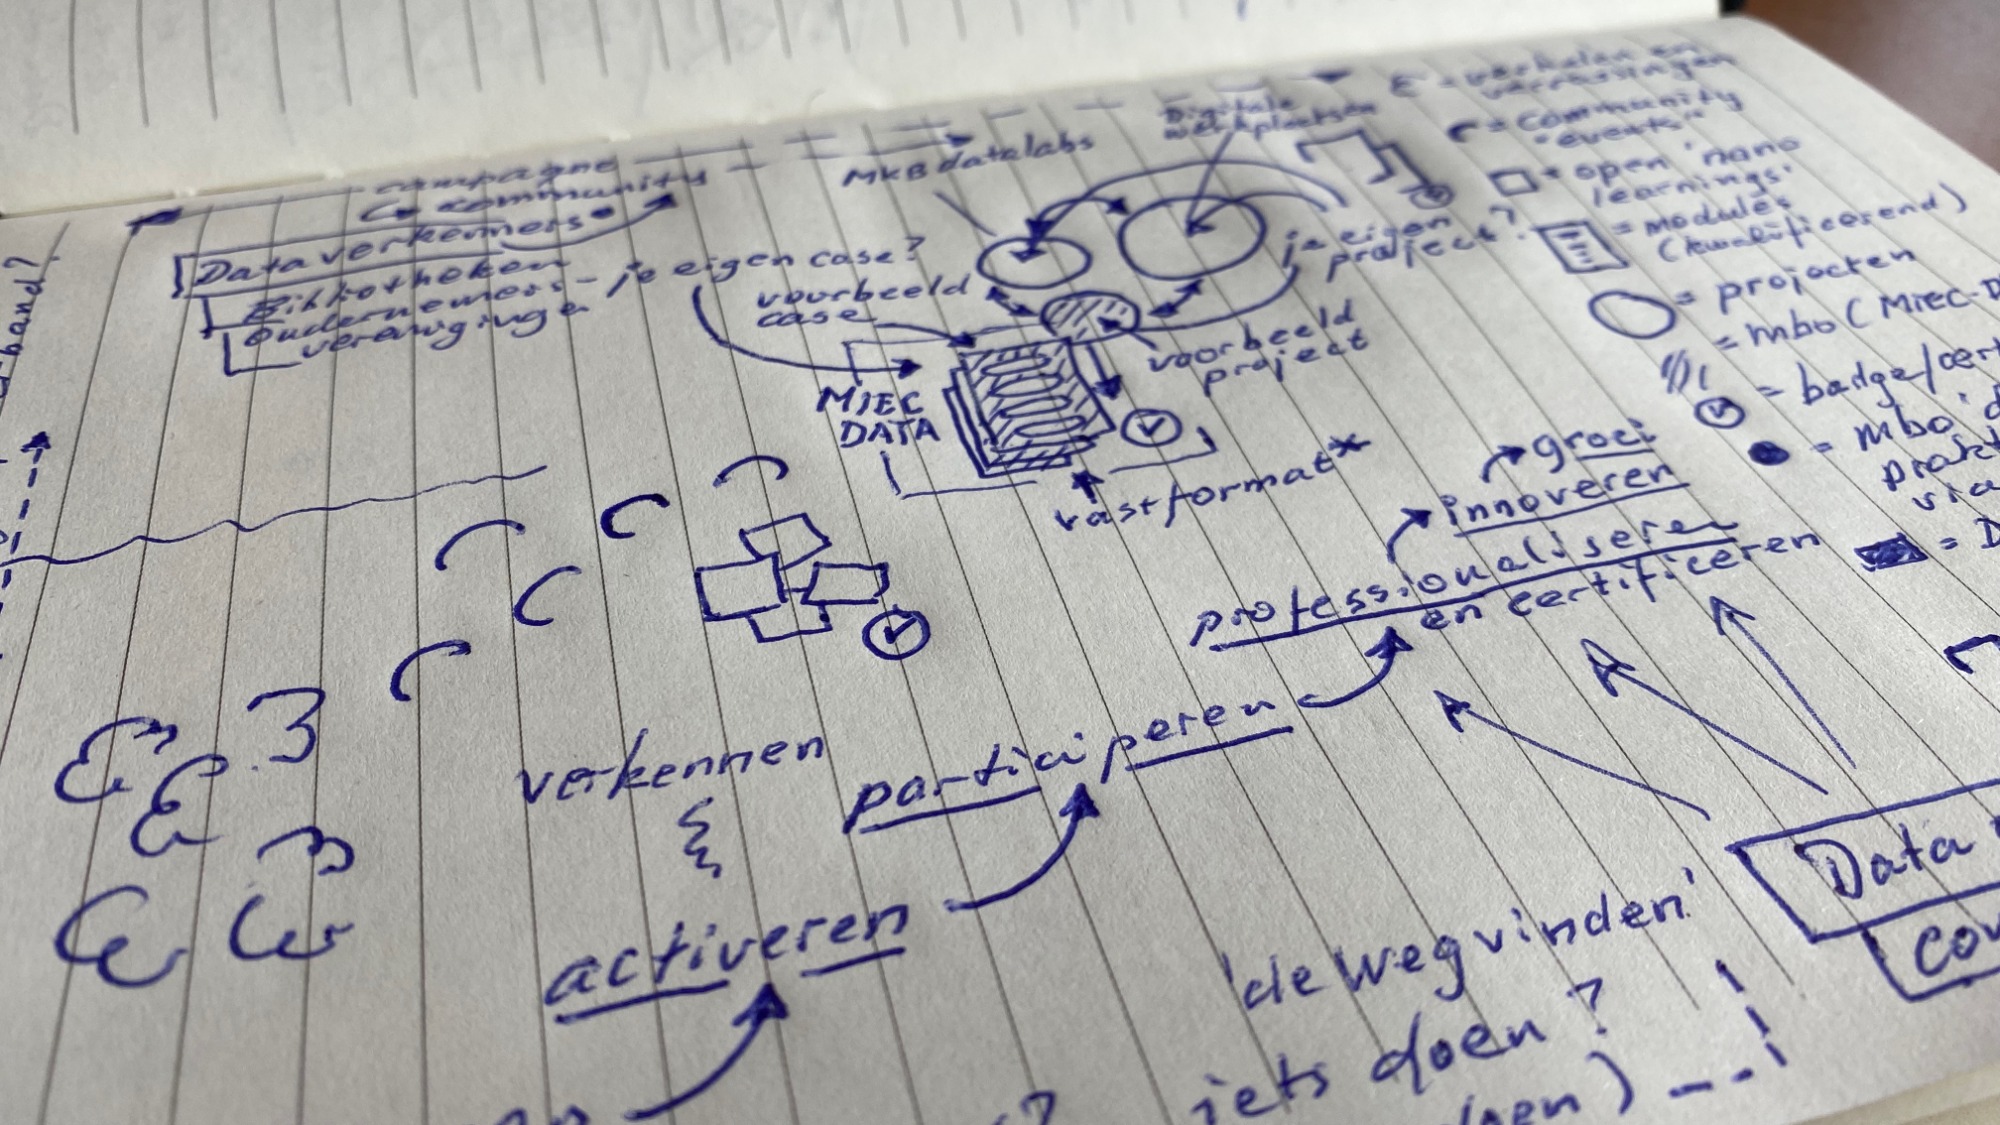 campagne
community
Dataverkenners
Bibliotheken
Ondernemers-
verenigingen
je eigen case?
voorbeeld
case
MKB datalabs
Digitale
werkplaatsen
je eigen
project?
voorbeeld
project
MIEC
DATA
vast format*
= verhalen en
verrassingen
= community
"events"
= open 'nano
learnings'
= modules
(kwalificerend)
= projecten
= mbo (MIEC-D
= badge/cert
= mbo
prakt
via
= D
groei
innoveren
professionaliseren
en certificeren
participeren
verkennen
activeren
'de weg vinden'
iets doen?
Data
band?